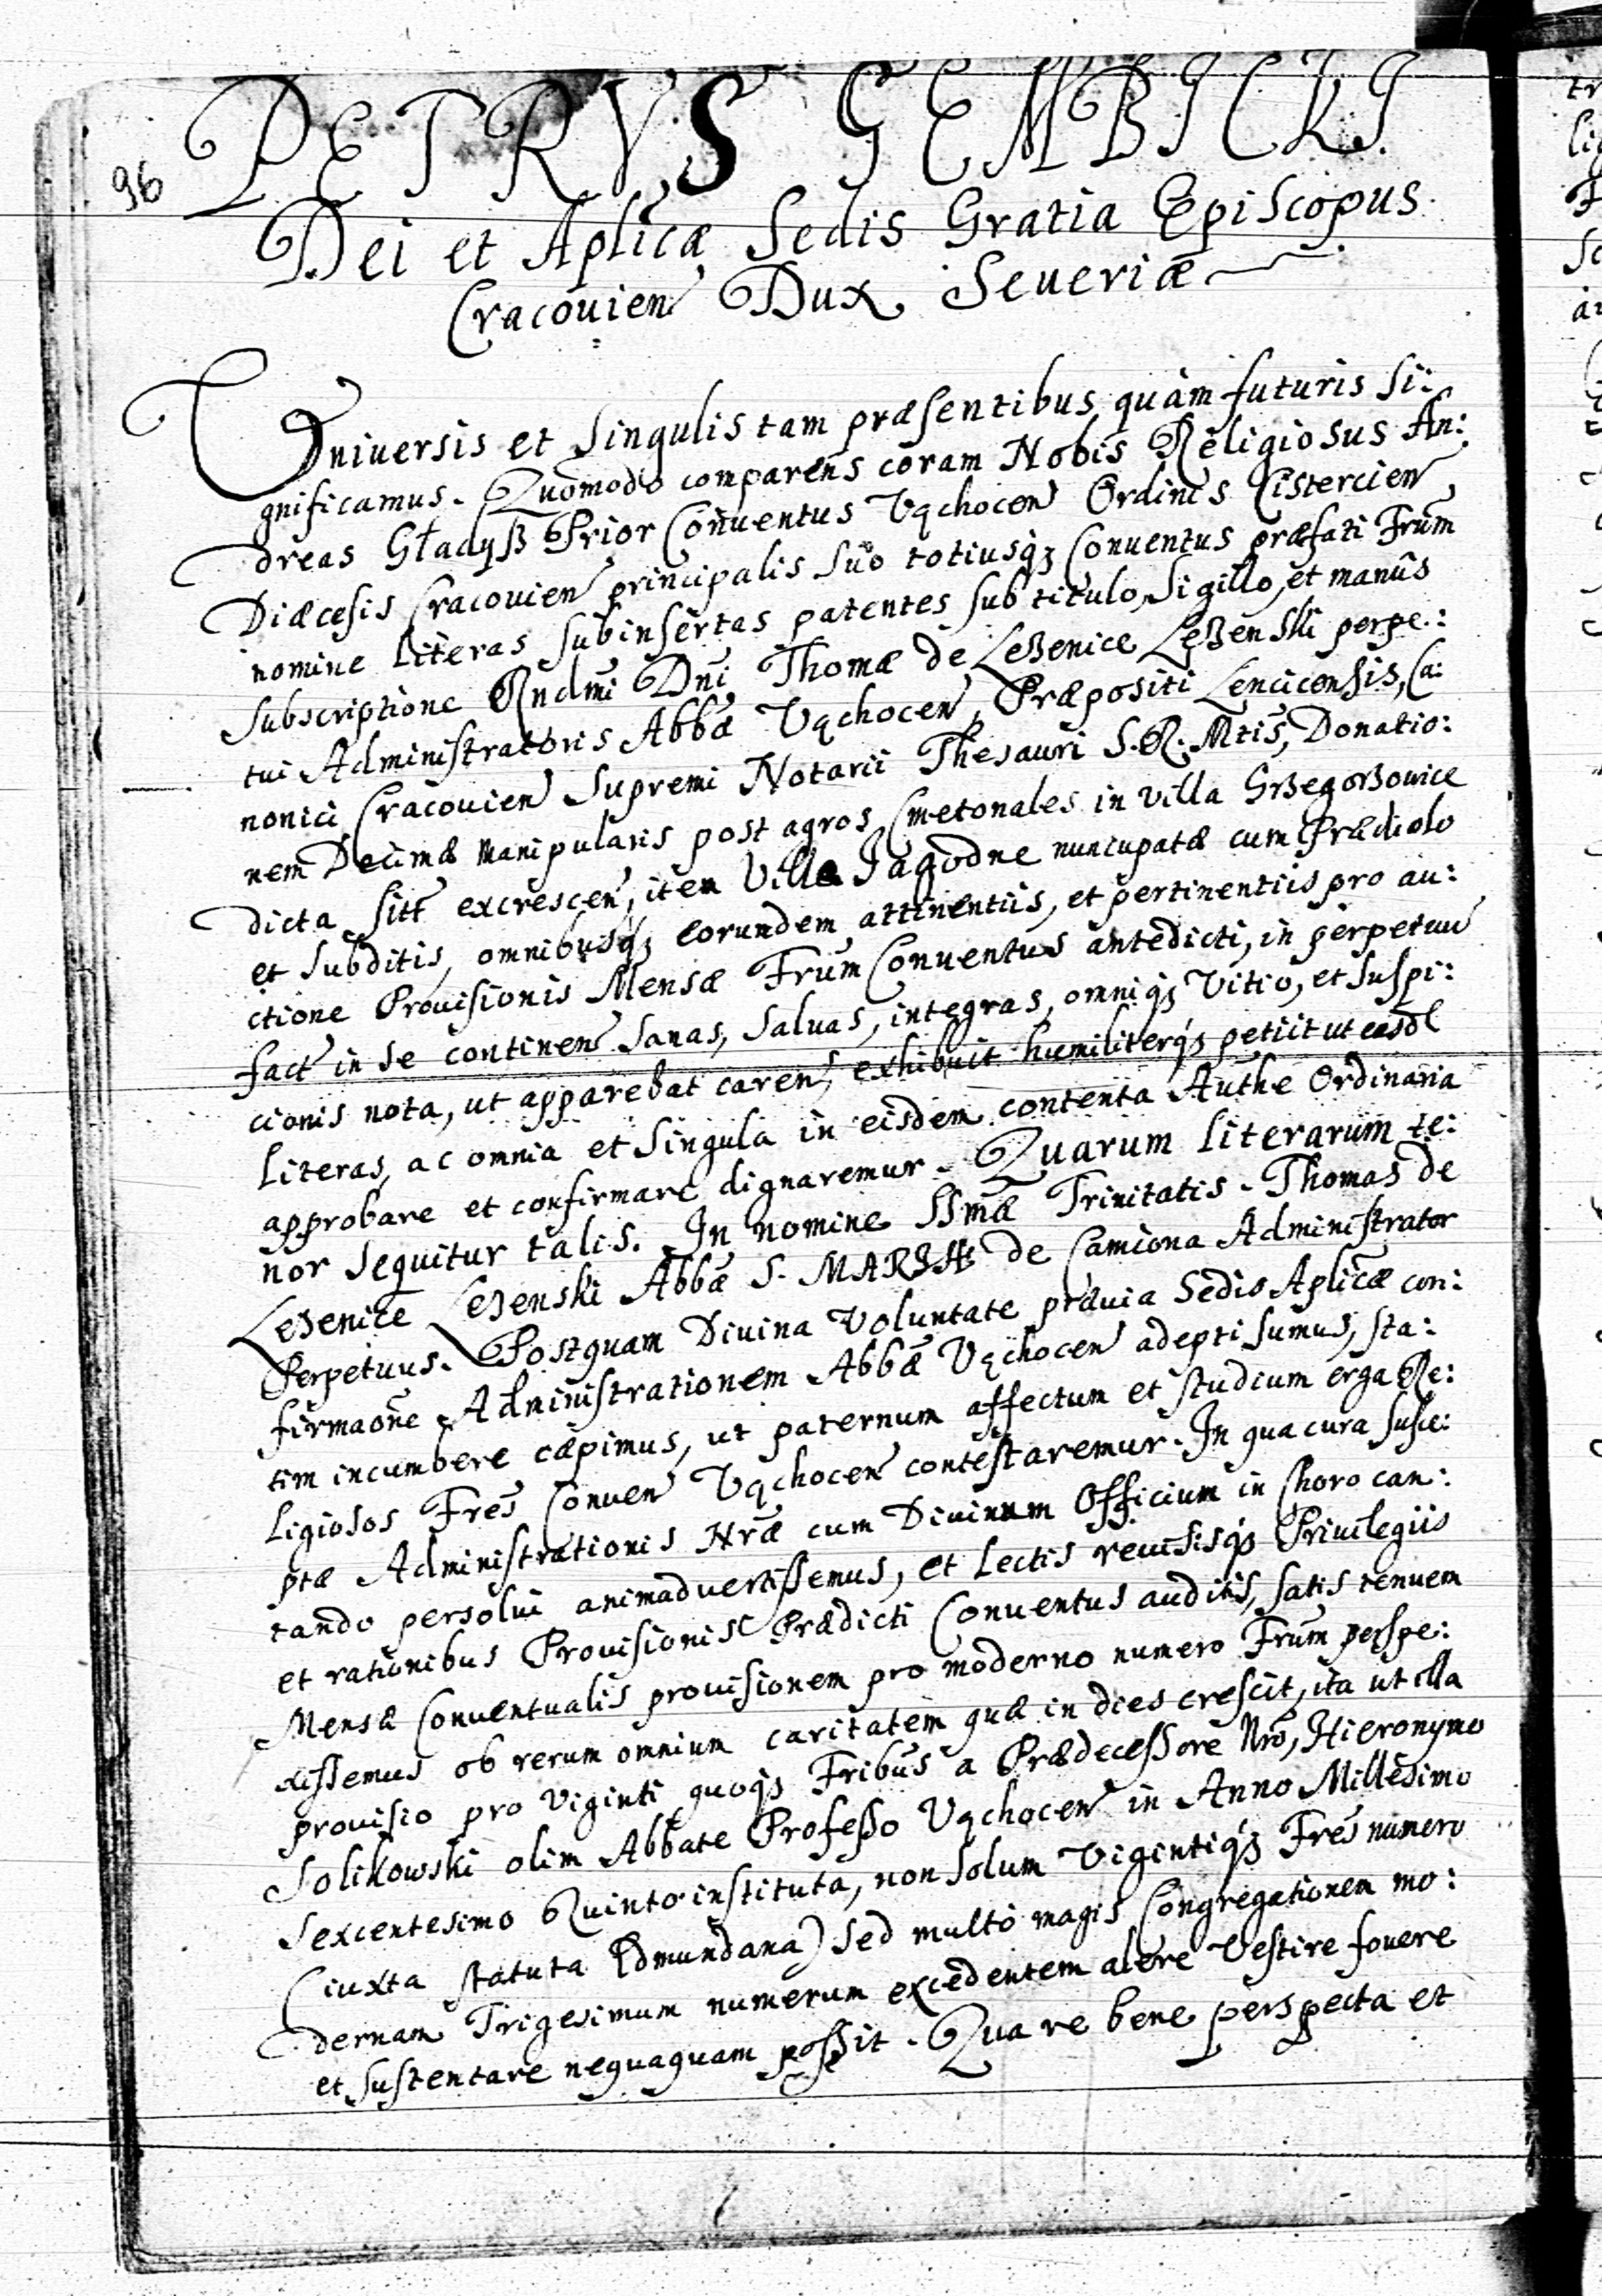 96
PETRVS GEMBICKI.
Dei et Aplicæ Sedis Gratia Episcopus
Cracouien Dux Seueriæ
Vniuersis et Singulis tam præsentibus quàm futuris Si:
gnificamus. Quomodo comparens coram Nobis Religiosus An:
dreas Gładysz Prior Conuentus Vąchocen Ordinis Cistercien
Diæcesis Cracouien principalis Suo totiusqz Conuentus præfati Frum
nomine literas subinsertas patentes sub titulo, Sigillo, et manûs
subscriptione Rndmi Dni Thomæ de Lezenice Lezenski perpe:
tui Administratoris Abbæ Vąchocen, Præpositi Lencicensis, Ca:
nonici Cracouien Supremi Notarii Thesauri S. R. Mtis, Donatio:
nem Decimæ Manipularis post agros Cmetonales in villa Grzegorzowice
dicta sitt excrescen, item Villæ Jagodne nuncupatæ cum Prædiolo
et Subditis, omnibusqz eorundem attinentiis, et pertinentiis pro au:
ctione Prouisionis Mensæ Frum Conuentus antedicti, in perpetuu
fact in se continen Sanas, Saluas, integras, omniqz Vitio, et Suspi:
cionis nota, ut apparebat caren, exhibuit humiliterqz petiit ut easdl
literas, ac omnia et Singula in eisdem contenta Authe Ordinaria
approbare et confirmare dignaremur. Quarum literarum te:
nor sequitur talis. In nomine SSmæ Trinitatis. Thomas de
Lezenice Lezenski Abbæ S. MARIÆ de Camiona Administrator
Perpetuus. Postquam Diuina Voluntate præuia Sedis Aplicæ con:
firmaone Administrationem Abbæ Vąchocen adepti sumus, sta:
tim incumbere cæpimus, ut paternum affectum et studium erga Re:
ligiosos Fres Conuen Vąchocen contestaremur. In qua cura susce:
ptæ Administrationis Nræ cum Diuinum Officium in Choro can:
tando persolui animaduertissemus, et lectis reuisisqz Priuilegiis
et rationibus Prouisionis Prædicti Conuentus auditis, satis tenuem
Mensæ Conuentualis prouisionem pro moderno numero Frum perspe:
xissemus ob rerum omnium caritatem quæ in dies crescit, ita ut illa
prouisio pro Viginti quoqz Fribus a Prædecessore Nro, Hieronymo
Solikowski olim Abbate Professo Vąchocen in Anno Millesimo
Sexcentesimo Quinto instituta, non solum Vigintiqz Fres numero
(iuxta statuta Edmundana) Sed multò magis Congregationem mo:
dernam Trigesimum numerum excedentem alere Vestire fouere
et sustentare nequaquam possit. Qua re bene perspecta et